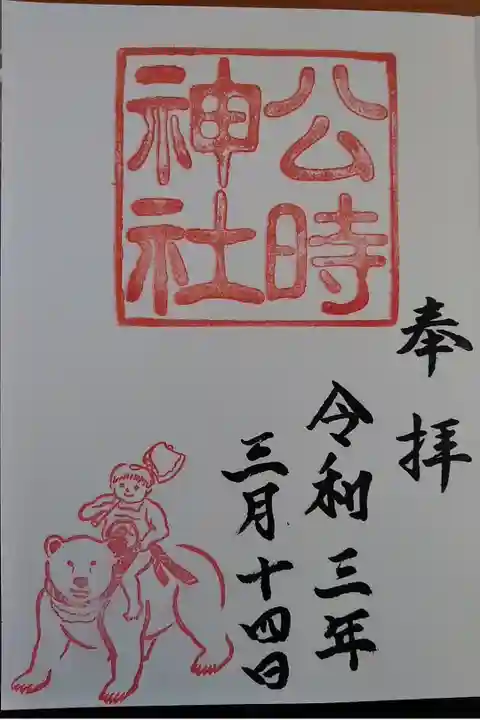 奉拝
公時
神社
令和三年
三月十四日